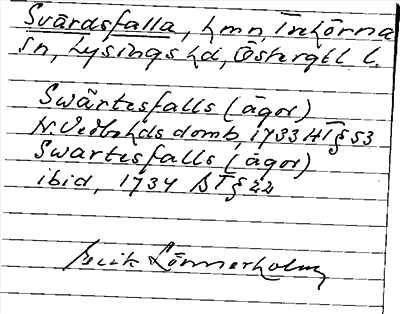 Svärdsfalla, hmn, Trehörna
sn, Lysings hd, Östergtl l.
Swärtesfalls (ägor)
N. Vedbohds domb, 1733 HT § 53
Swartesfalls (ägor)
ibid, 1734 ST § 22
Erik Lönnerholm